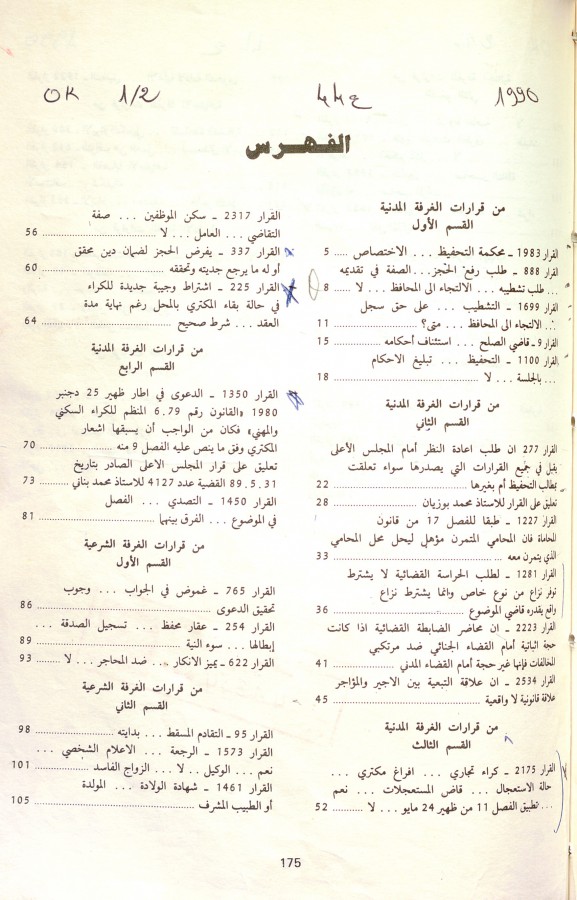 OK 1/2 44ع 1990
الفهرس
من قرارات الغرفة المدنية
القسم الأول
القرار 1983 ـ محكمة التحفيظ ... الاختصاص ..... 5
القرار 888 ـ طلب رفع الحجز... الصفة في تقديمه
... طلب تشطيبه ... الالتجاء الى المحافظ ... لا ..... 8
القرار 1699 ـ التشطيب ... على حق سجل
... الالتجاء الى المحافظ ... متى؟ ..... 11
القرار 9 ـ قاضي الصلح ... استئناف أحكامه ..... 15
القرار 1100 ـ التحفيظ ... تبليغ الاحكام
... بالجلسة ... لا ..... 18
من قرارات الغرفة المدنية
القسم الثاني
القرار 277 ان طلب اعادة النظر أمام المجلس الأعلى
يقبل في جميع القرارات التي يصدرها سواء تعلقت
بطالب التحفيظ أم بغيرها ..... 22
تعليق على القرار للاستاذ محمد بوزيان ..... 28
القرار 1227 ـ طبقا للفصل 17 من قانون
المحاماة فان المحامي المتمرن مؤهل ليحل محل المحامي
الذي يتمرن معه ..... 33
القرار 1281 ـ لطلب الحراسة القضائية لا يشترط
توفر نزاع من نوع خاص وانما يشترط نزاع
واقع يقدره قاضي الموضوع ..... 36
القرار 2223 ـ ان محاضر الضابطة القضائية اذا كانت
حجة اثباتية أمام القضاء الجنائي ضد مرتكبي
المخالفات فإنها غير حجة أمام القضاء المدني ..... 41
القرار 2534 ـ ان علاقة التبعية بين الاجير والمؤاجر
علاقة قانونية لا واقعية ..... 45
من قرارات الغرفة المدنية
القسم الثالث
القرار 2175 ـ كراء تجاري ... افراغ مكتري ...
حالة الاستعجال ... قاض المستعجلات ... نعم
... تطبيق الفصل 11 من ظهير 24 مايو ... لا ..... 52
القرار 2317 ـ سكن الموظفين ... صفة
التقاضي ... العامل ... لا ..... 56
القرار 337 ـ يفرض الحجز لضمان دين محقق
أوله ما يرجح جديته وتحققه ..... 60
القرار 225 ـ اشتراط وجيبة جديدة للكراء
في حالة بقاء المكتري بالمحل رغم نهاية مدة
العقد ... شرط صحيح ..... 64
من قرارات الغرفة المدنية
القسم الرابع
القرار 1350 ـ الدعوى في اطار ظهير 25 دجنبر
1980 «القانون رقم 6.79 المنظم للكراء السكني
والمهني» فكان من الواجب أن يسبقها اشعار
المكتري وفق ما ينص عليه الفصل 9 منه ..... 70
تعليق على قرار المجلس الاعلى الصادر بتاريخ
89.5.31 القضية عدد 4127 للاستاذ محمد بناني ..... 73
القرار 1450 ـ التصدي ... الفصل
في الموضوع ... الفرق بينهما ..... 81
من قرارات الغرفة الشرعية
القسم الأول
القرار 765 ـ غموض في الجواب ... وجوب
تحقيق الدعوى ..... 86
القرار 254 ـ عقار محفظ ... تسجيل الصدقة ...
إبطالها ... سوء النية ..... 89
القرار 622 ـ يميز الانكار ... ضد المحاجر ... لا ..... 93
من قرارات الغرفة الشرعية
القسم الثاني
القرار 95 ـ التقادم المسقط ... بدايته ..... 98
القرار 1573 ـ الرجعة ... الاعلام الشخصي ...
نعم ... الوكيل .. لا ... الزواج الفاسد ..... 101
القرار 1461 ـ شهادة الولادة ... المولدة
أو الطبيب المشرف ..... 105
175